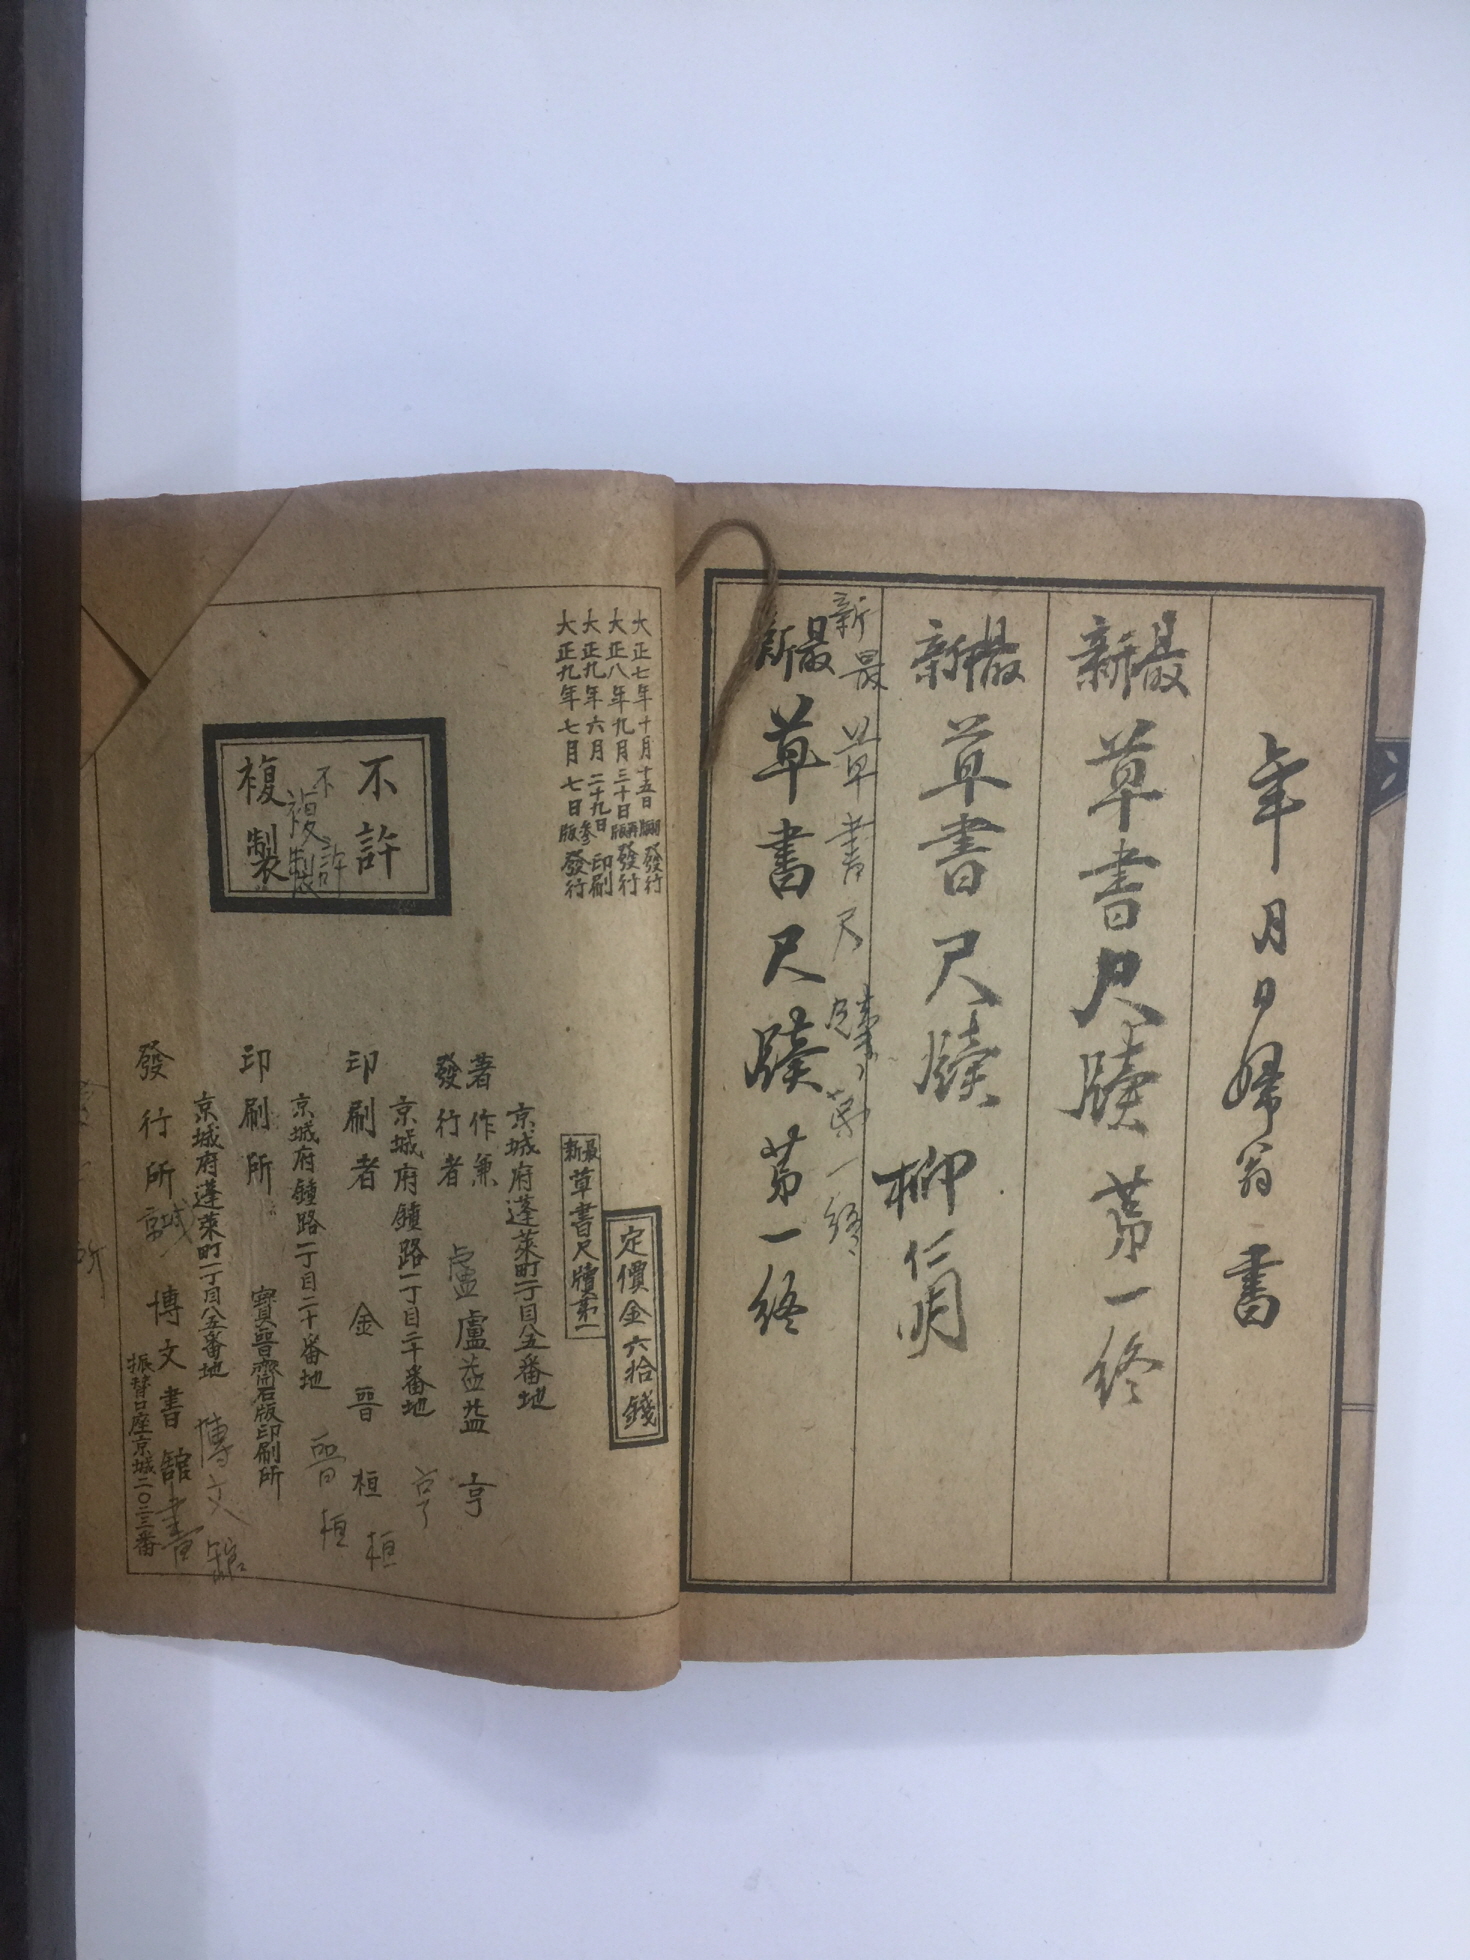 年月日婦翁書
最新草書尺牘 第一終
最新草書尺牘 柳仁明
新最草書尺牘第一終
最新草書尺牘 第一終
大正七年十月十五日初版發行
大正八年九月三十日再版發行
大正九年六月二十九日印刷
大正九年七月七日參版發行
定價金六拾錢
最新草書尺牘第一
不許
複製
不許
複製
京城府蓬萊町一丁目八五番地
著作兼
發行者 盧益亨
盧益亨
京城府鐘路一丁目二十番地
印刷者 金晋桓
桓
晋桓
京城府鐘路一丁目二十番地
印刷所 寶晋齋石版印刷所
京城府蓬萊町一丁目八五番地
博文館
發行所 博文書舘
誠
書
振替口座京城二〇二三番
所